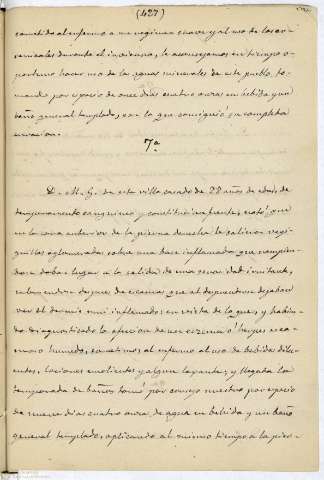 (427)
sometido al enfermo a un régimen suave y al uso de los ar-
senicales durante el invierno, le aconsejamos en tiempo o-
portuno hacer uso de las aguas minerales de este pueblo, to-
mando por espacio de once dias cuatro onzas en bebida y un
baño general templado, con lo que consiguió su completa
curacion.
7ª
D. M. G. de esta villa casado de 28 años de edad, de
temperamento sanguineo y constitucion fuerte, notó que
en la cara anterior de la pierna derecha le salieron vegi-
guillas aglomeradas sobre una base inflamada que rompien-
dose daba lugar a la salida de una serosidad irritante,
cubriendose despues de escamas que al desprenderse dejaba
ver el dermis muy inflamado: en vista de lo que, y habien-
do diagnosticado la afeccion de un eczema ó herpes esca-
moso humedo, sometimos al enfermo al uso de bebidas dilu-
entes, lociones emolientes y algun laxante, y llegada la
temporada de baños tomó por consejo nuestro por espacio
de nueve dias cuatro onzas de agua en bebida y un baño
general templado, aplicando al mismo tiempo a la pier-